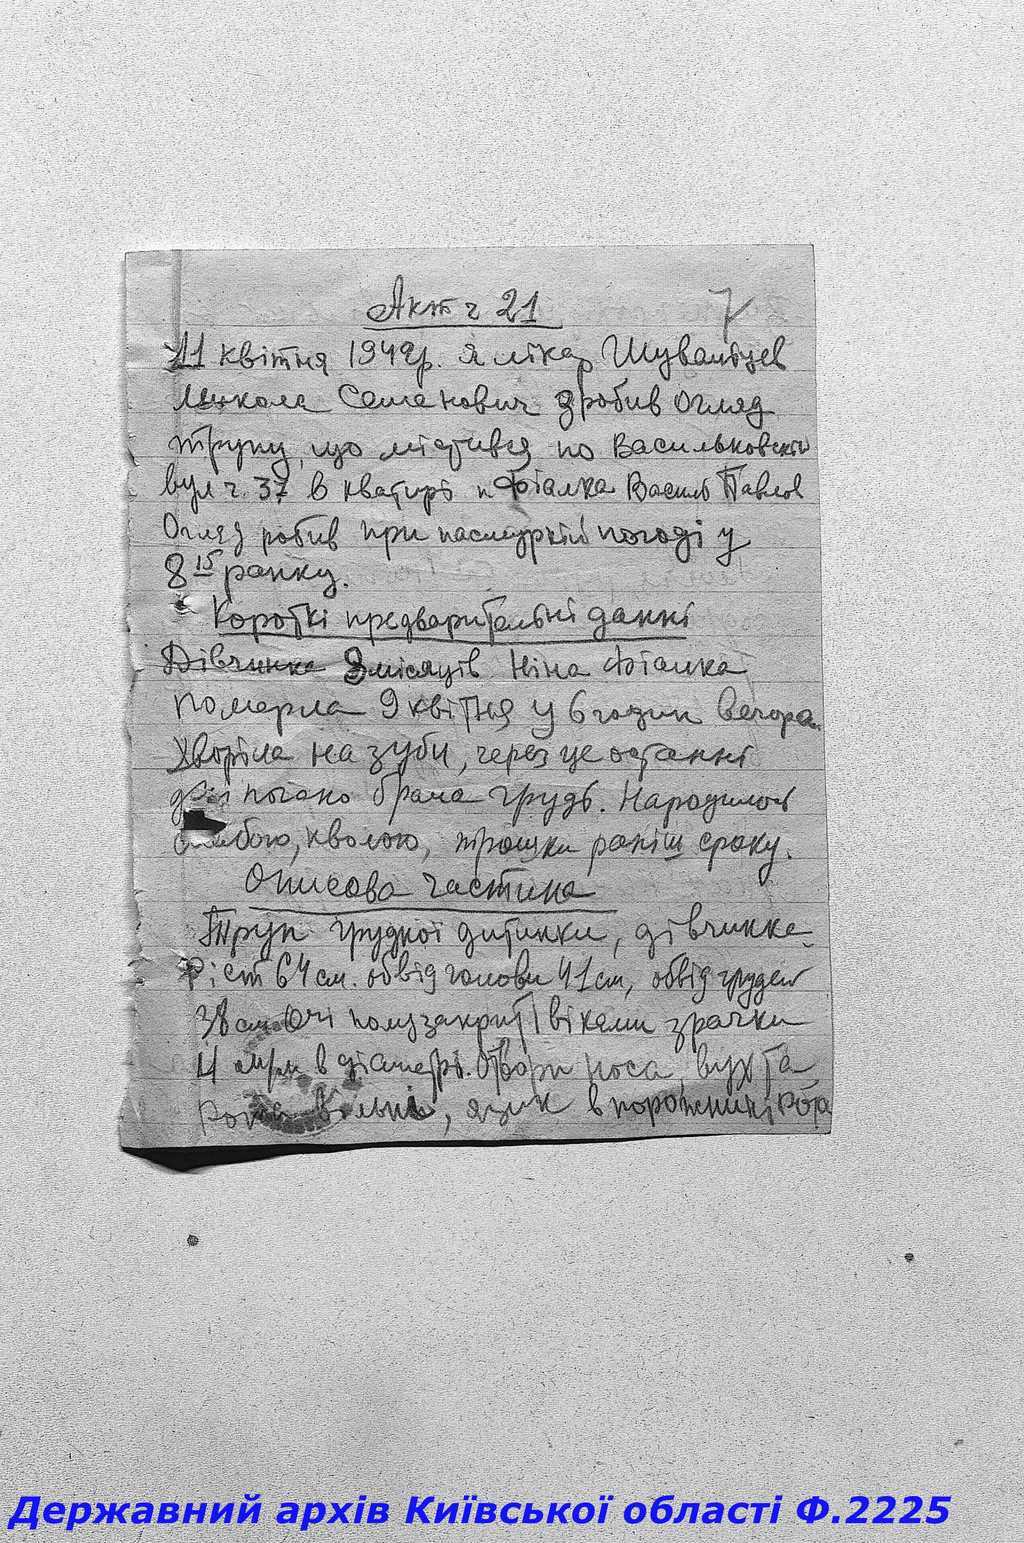 Акт ч 21
7
11 квітня 1942р. я лікар Шувалицев
Микола Семенович зробив огляд
трупу, що містився по Васильковскій
вул ч. 37 в кватирі п Фіалка Василь Павлов
Огляд робив при пасмурній погоді у
8 15 ранку.
Короткі предварительні данні
Дівчинка 8 місяців Ніна Фіалка
померла 9 квітня у 6 годин вечора.
Хворіла на зуби, через це останні
дні погано брала грудь. Народилась
слабою, кволою, трошки раніш сроку.
Описова частина
Труп грудної дитинки, дівчинка.
Ріст 64 см. обвід голови 41 см, обвід грудей
38 см Очі полузакриті віками зрачки
4 м/м в діаметрі. Отвори носа, вух та
рота вільні, язик в порожнині рота
Державний архів Київської області Ф.2225